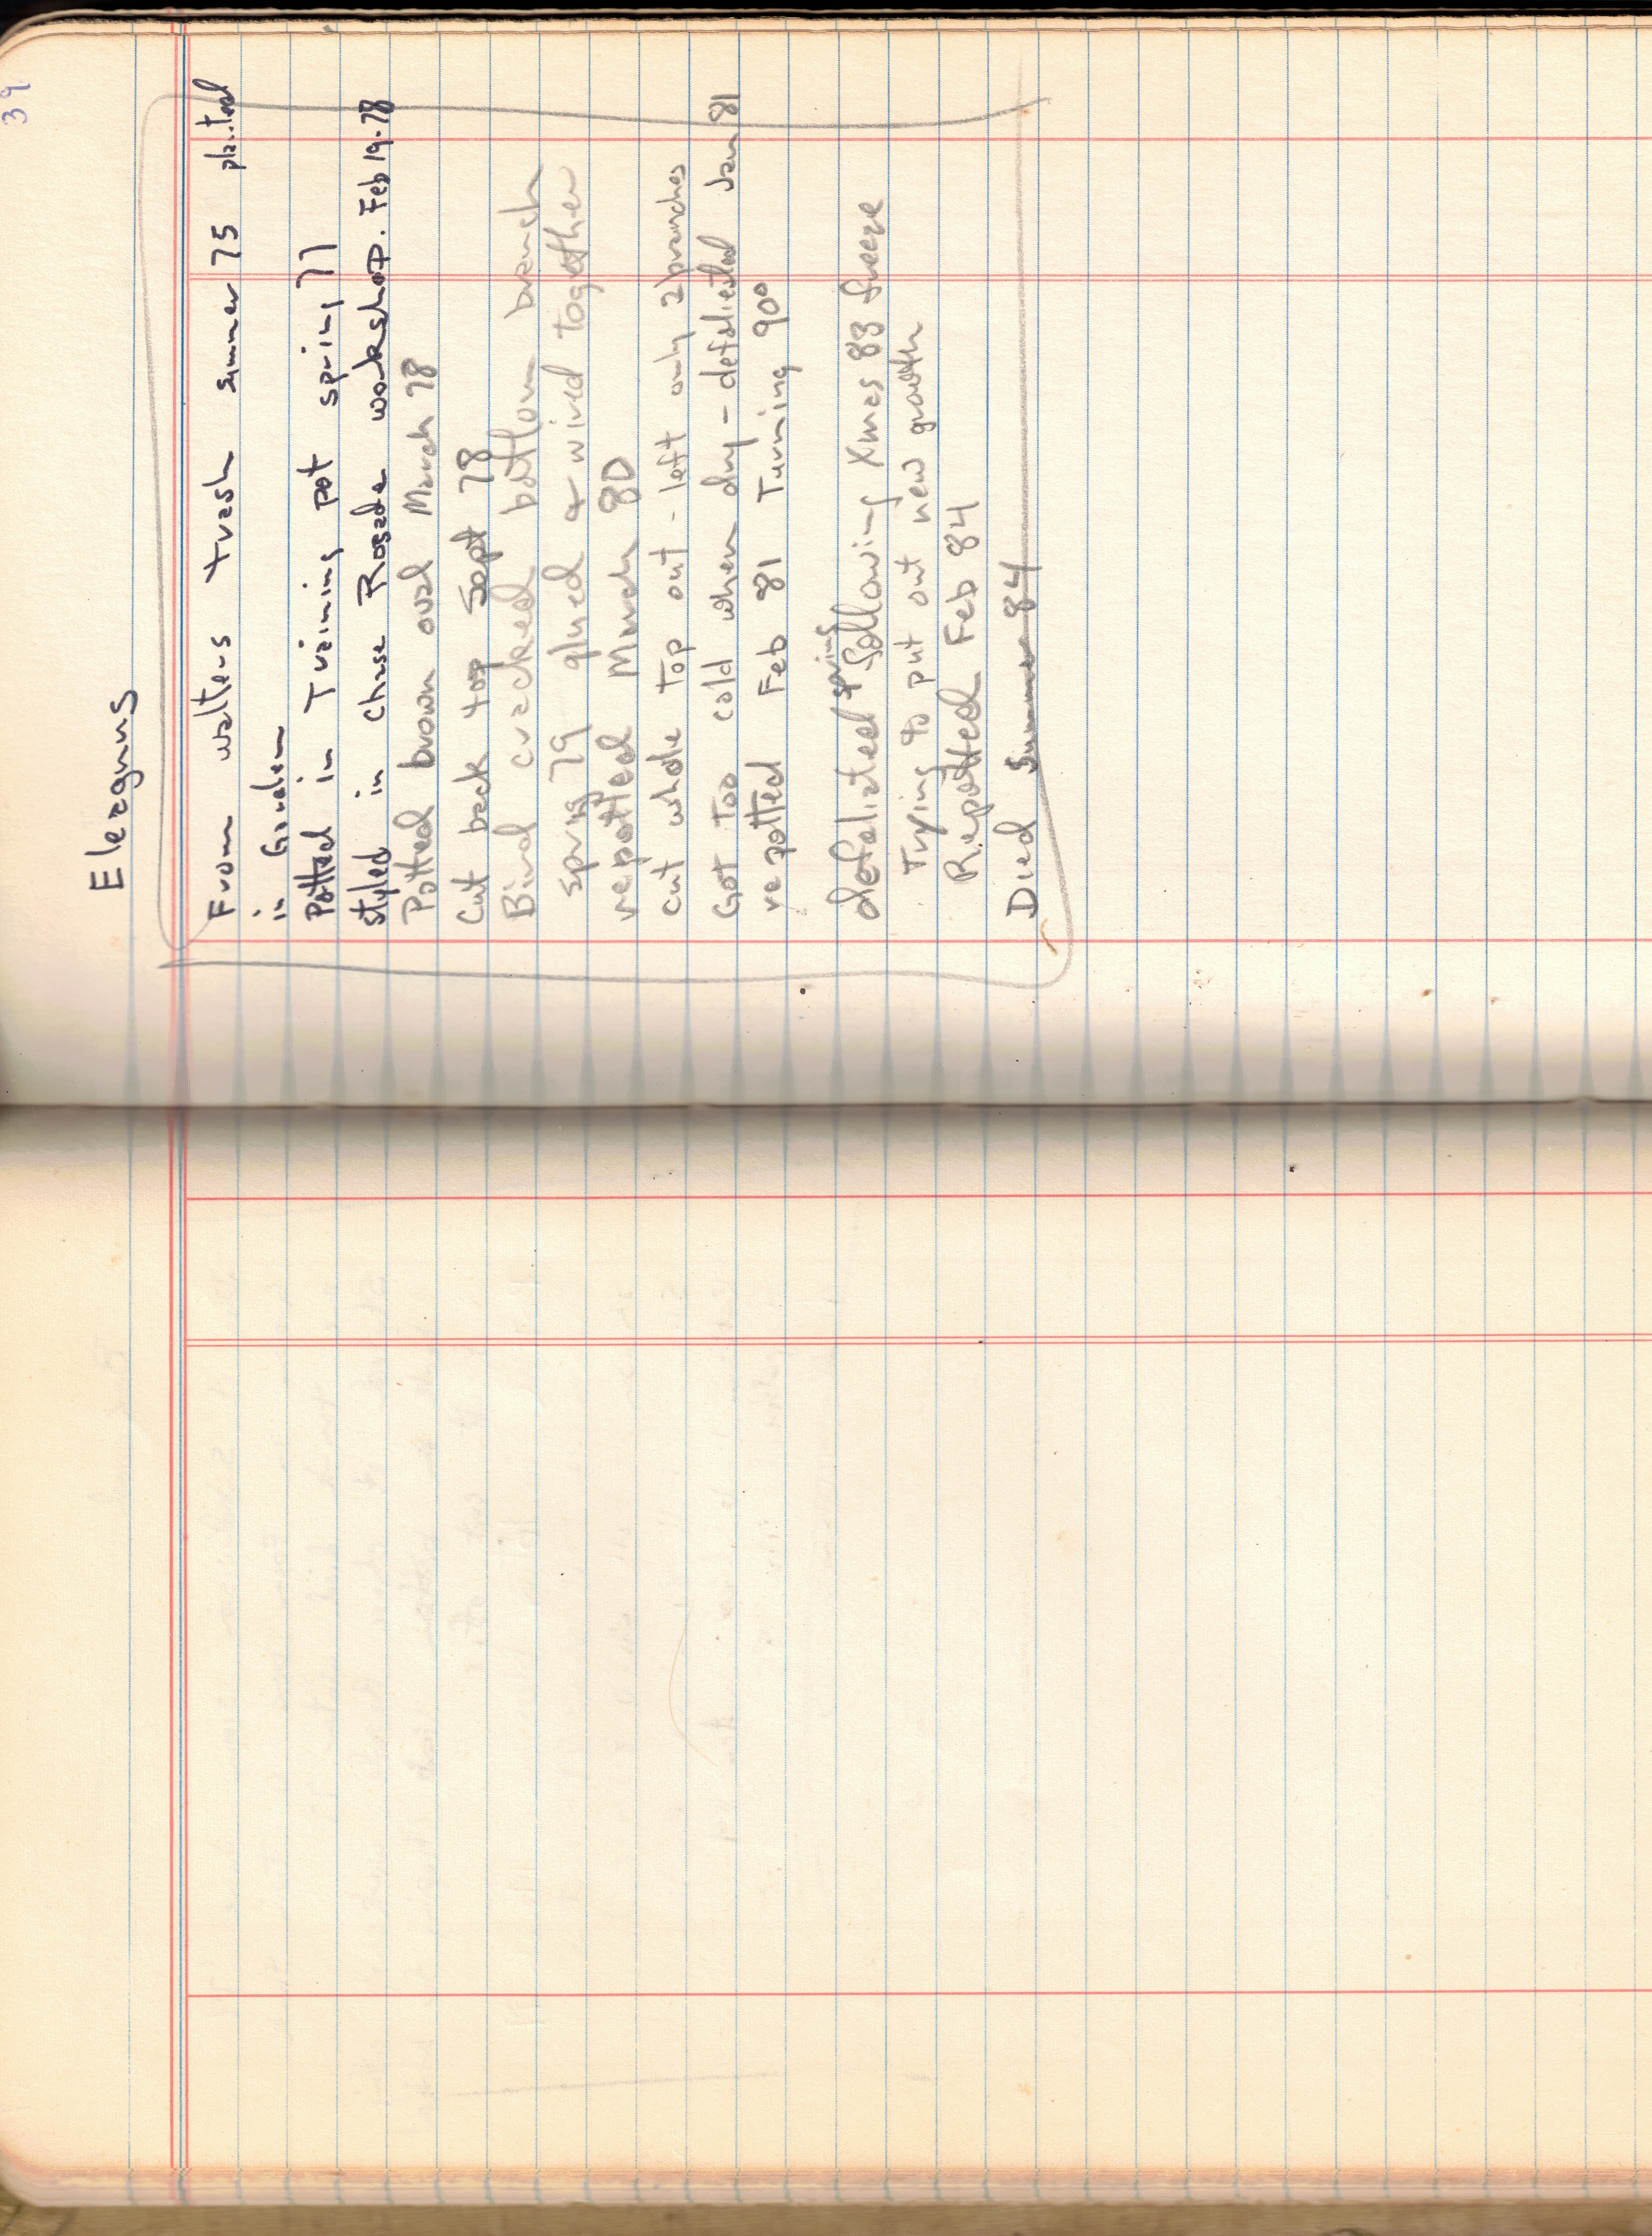 39
Eleagnus
From walters trash summer 75 planted
in Garden
Potted in Training pot spring 77
styled in Chase Rosade workshop. Feb 19-78
Potted brown oval March 78
Cut back top Sept 78
Bird cracked bottom branch
spring 79 glued & wired together
repotted March 80
cut whole top out - left only 2 branches
Got too cold when dry - defoliated Jan 81
repotted Feb 81 Turning 90°
spring
defoliated following Xmas 83 freeze
Trying to put out new growth
Repotted Feb 84
Died Summer 84